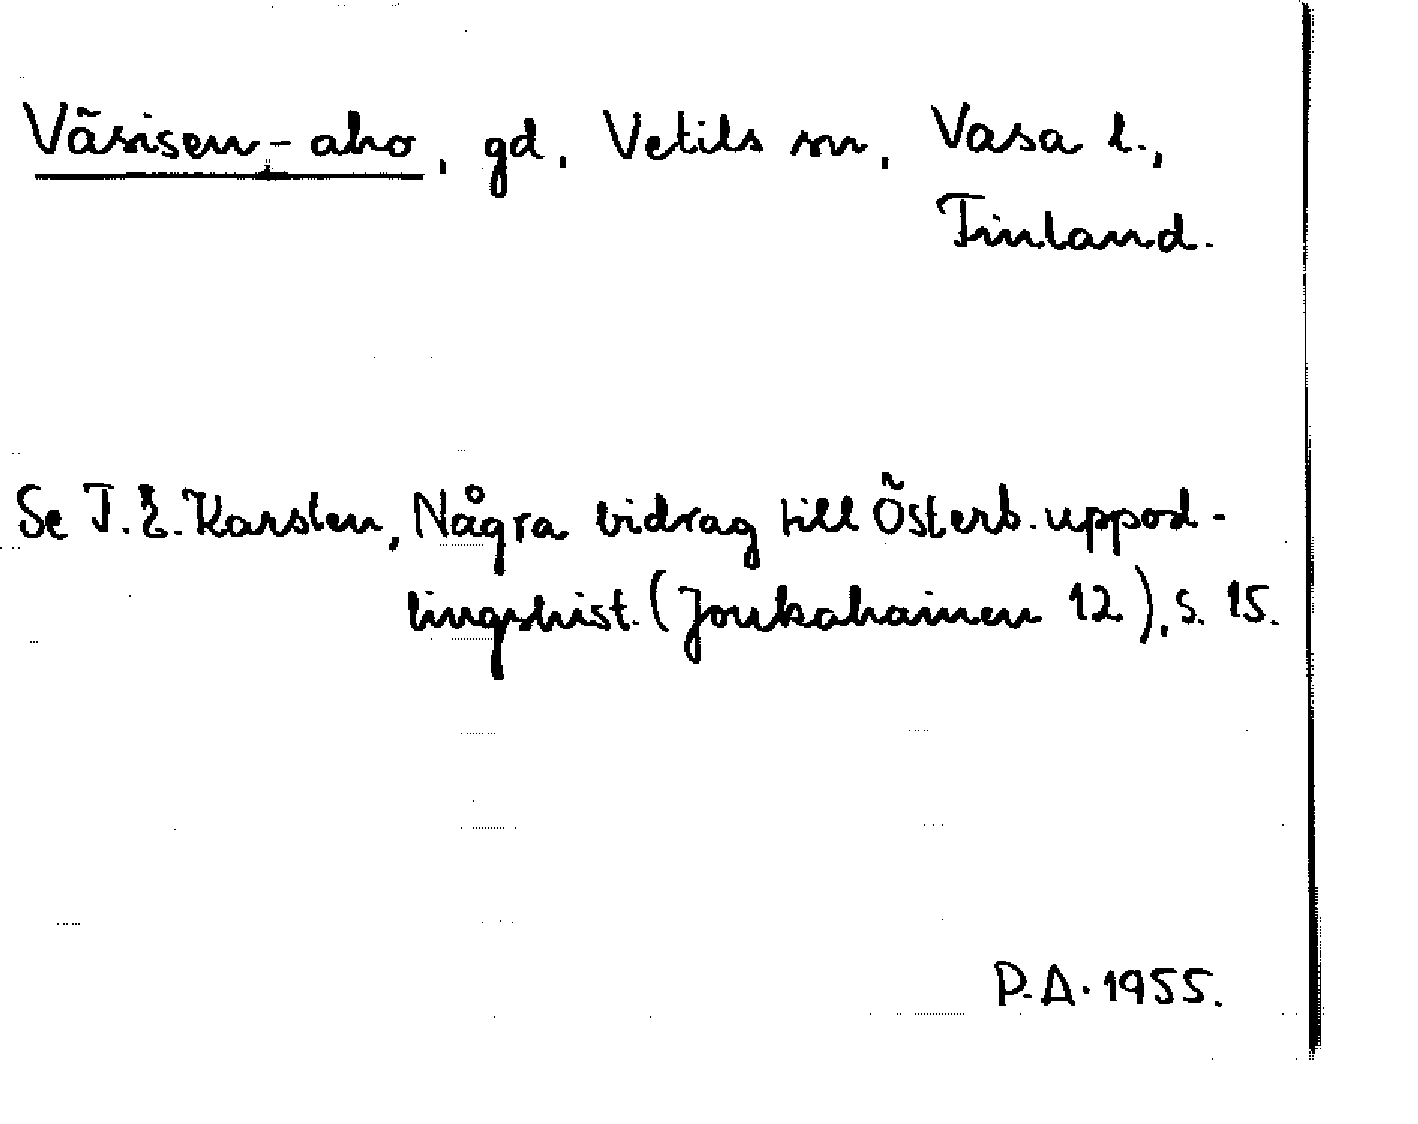 Väsisen-aho, gd, Vetils sn, Vasa l.,
Finland.
Se T.E. Karsten, Några bidrag till Österb. uppod-
lingshist. (Joukahainen 12), s. 15.
P.A. 1955.